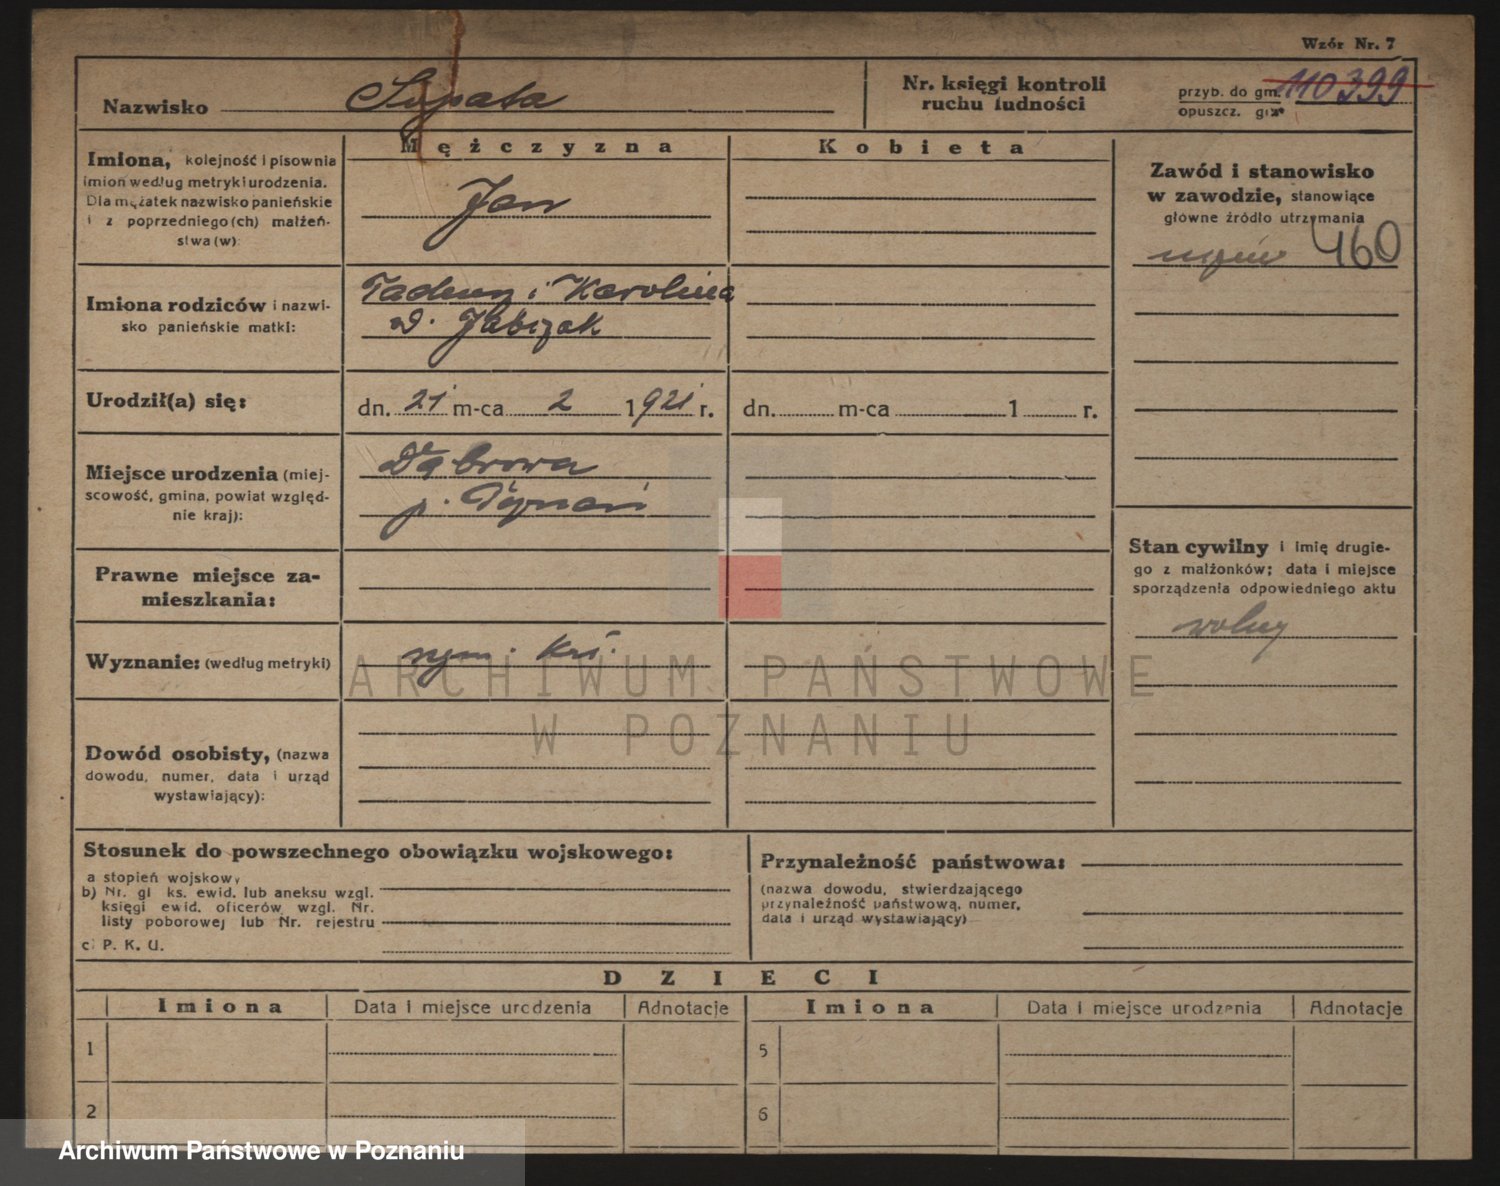 Wzór Nr. 7
Nazwisko
Nr. księgi kontroli
ruchu ludności
przyb. do gm. 110399
opuszcz. gm.
Mężczyzna
Kobieta
Imiona, kolejność i pisownia
imion według metryki urodzenia.
Dla mężatek nazwisko panieńskie
i z poprzedniego(ch) małżeń-
stwa(w):
Jan
Zawód i stanowisko
w zawodzie, stanowiące
główne źródło utrzymania
460
Imiona rodziców i nazwi-
sko panieńskie matki:
Tadeusz i Karolina
Urodził(a) się:
dn. 21 m-ca 2 1921 r.
dn. m-ca 1 r.
Miejsce urodzenia (miej-
scowość, gmina, powiat względ-
nie kraj):
Dąbrowa
p. Poznań
Prawne miejsce za-
mieszkania:
Stan cywilny i imię drugie-
go z małżonków; data i miejsce
sporządzenia odpowiedniego aktu
wolny
Wyznanie: (według metryki)
rzym. kat.
Dowód osobisty, (nazwa
dowodu, numer, data i urząd
wystawiający):
Stosunek do powszechnego obowiązku wojskowego:
a stopień wojskowy
b) Nr. gł ks. ewid. lub aneksu wzgl.
księgi ewid. oficerów wzgl. Nr.
listy poborowej lub Nr. rejestru
c) P. K. U.
Przynależność państwowa:
(nazwa dowodu, stwierdzającego
przynależność państwową, numer,
data i urząd wystawiający)
DZIECI
Imiona Data i miejsce urodzenia Adnotacje Imiona Data i miejsce urodzenia Adnotacje
1 5
2 6
ARCHIWUM PAŃSTWOWE
W POZNANIU
Archiwum Państwowe w Poznaniu